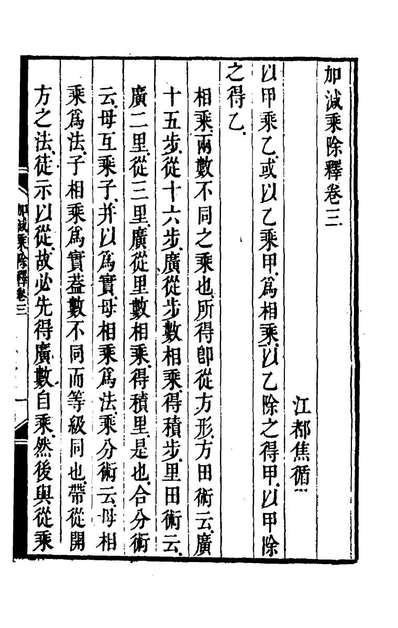 加減乘除釋卷三
江都焦循
以甲乘乙或以乙乘甲爲相乘以乙除之得甲以甲除
之得乙
相乘兩數不同之乘也所得卽從方形方田術云廣
十五步從十六步廣從步數相乘得積步里田術云
廣二里從三里廣從里數相乘得積里是也合分術
云母互乘子并以爲實母相乘爲法乘分術云母相
乘爲法子相乘爲實蓋數不同而等級同也帶從開
方之法徒示以從故必先得廣數自乘然後與從乘
加減乘除釋卷三
一